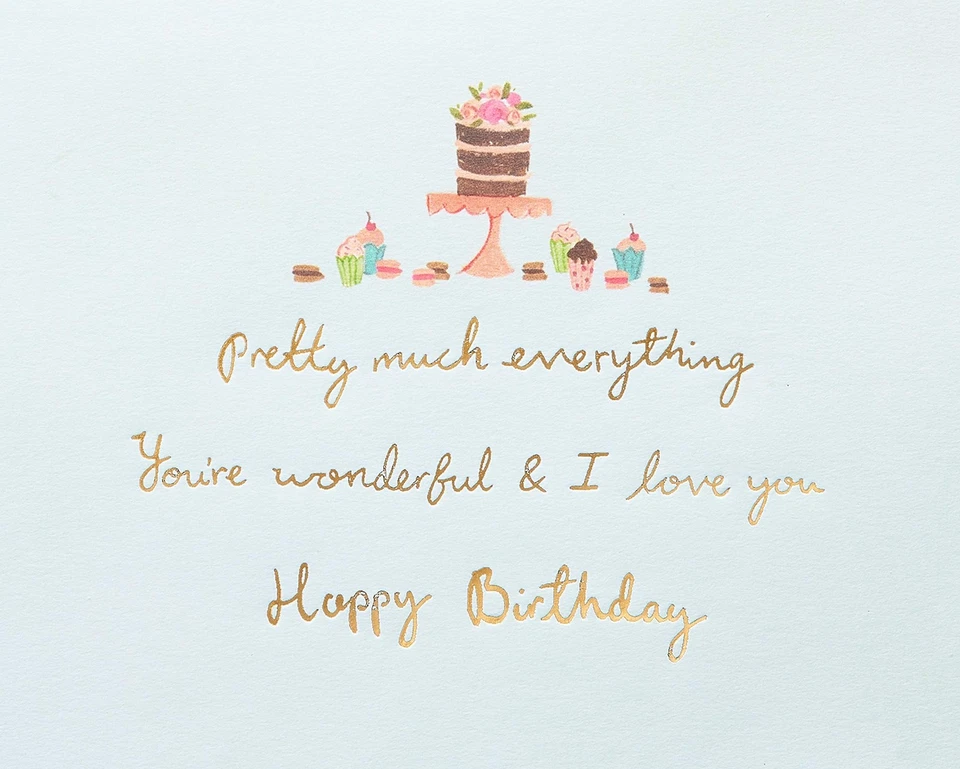 Pretty much everything
You're wonderful & I love you
Happy Birthday